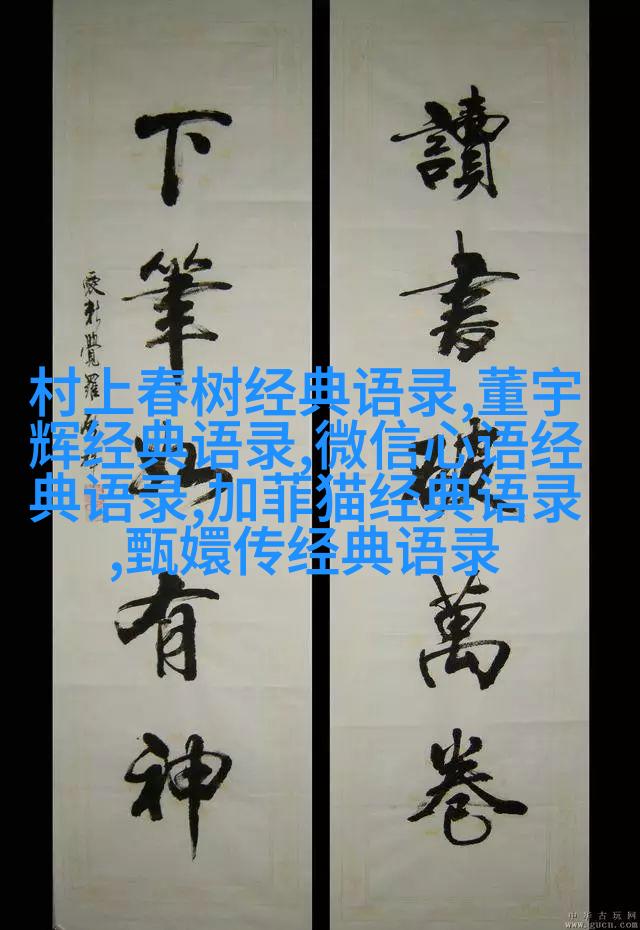 讀書破萬卷
下筆如有神
愛新覺羅啟驤
村上春树经典语录,董宇
辉经典语录,微信心语经
典语录,加菲猫经典语录
,甄嬛传经典语录
中华古玩网
www.gucn.com